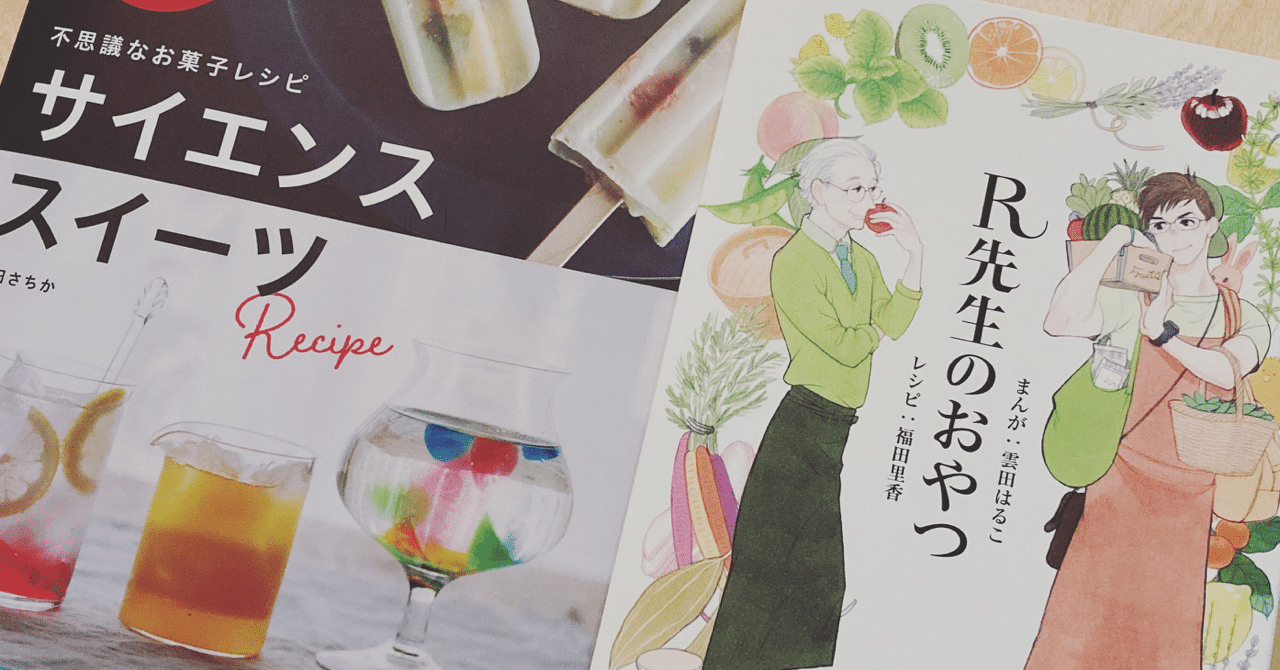 不思議なお菓子レシピ
サイエンス
スイーツ
さちか
Recipe
R先生のおやつ
まんが：雲田はるこ
レシピ：福田里香